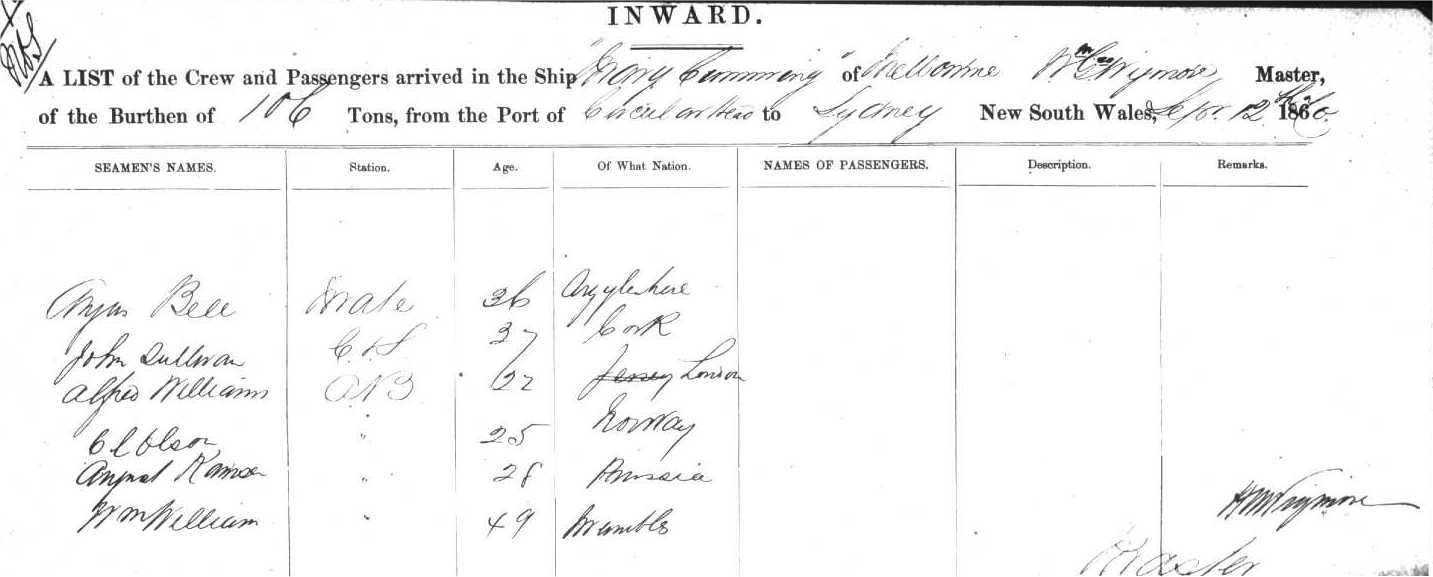 INWARD.
A LIST of the Crew and Passengers arrived in the Ship "Mary Cumming" of Melbourne Wm Wrymore Master,
of the Burthen of 106 Tons, from the Port of Circular Head to Sydney New South Wales, Sepr. 12th 1860
SEAMEN'S NAMES. Station. Age. Of What Nation. NAMES OF PASSENGERS. Description. Remarks.
Angus Bell Mate 36 Argyleshire
John Sullivan C & S 37 Cork
Alfred Williams AB 22 Jersey London
C Olson " 25 Norway
August " 28 Prussia
Wm William " 49 Mumbles
Master